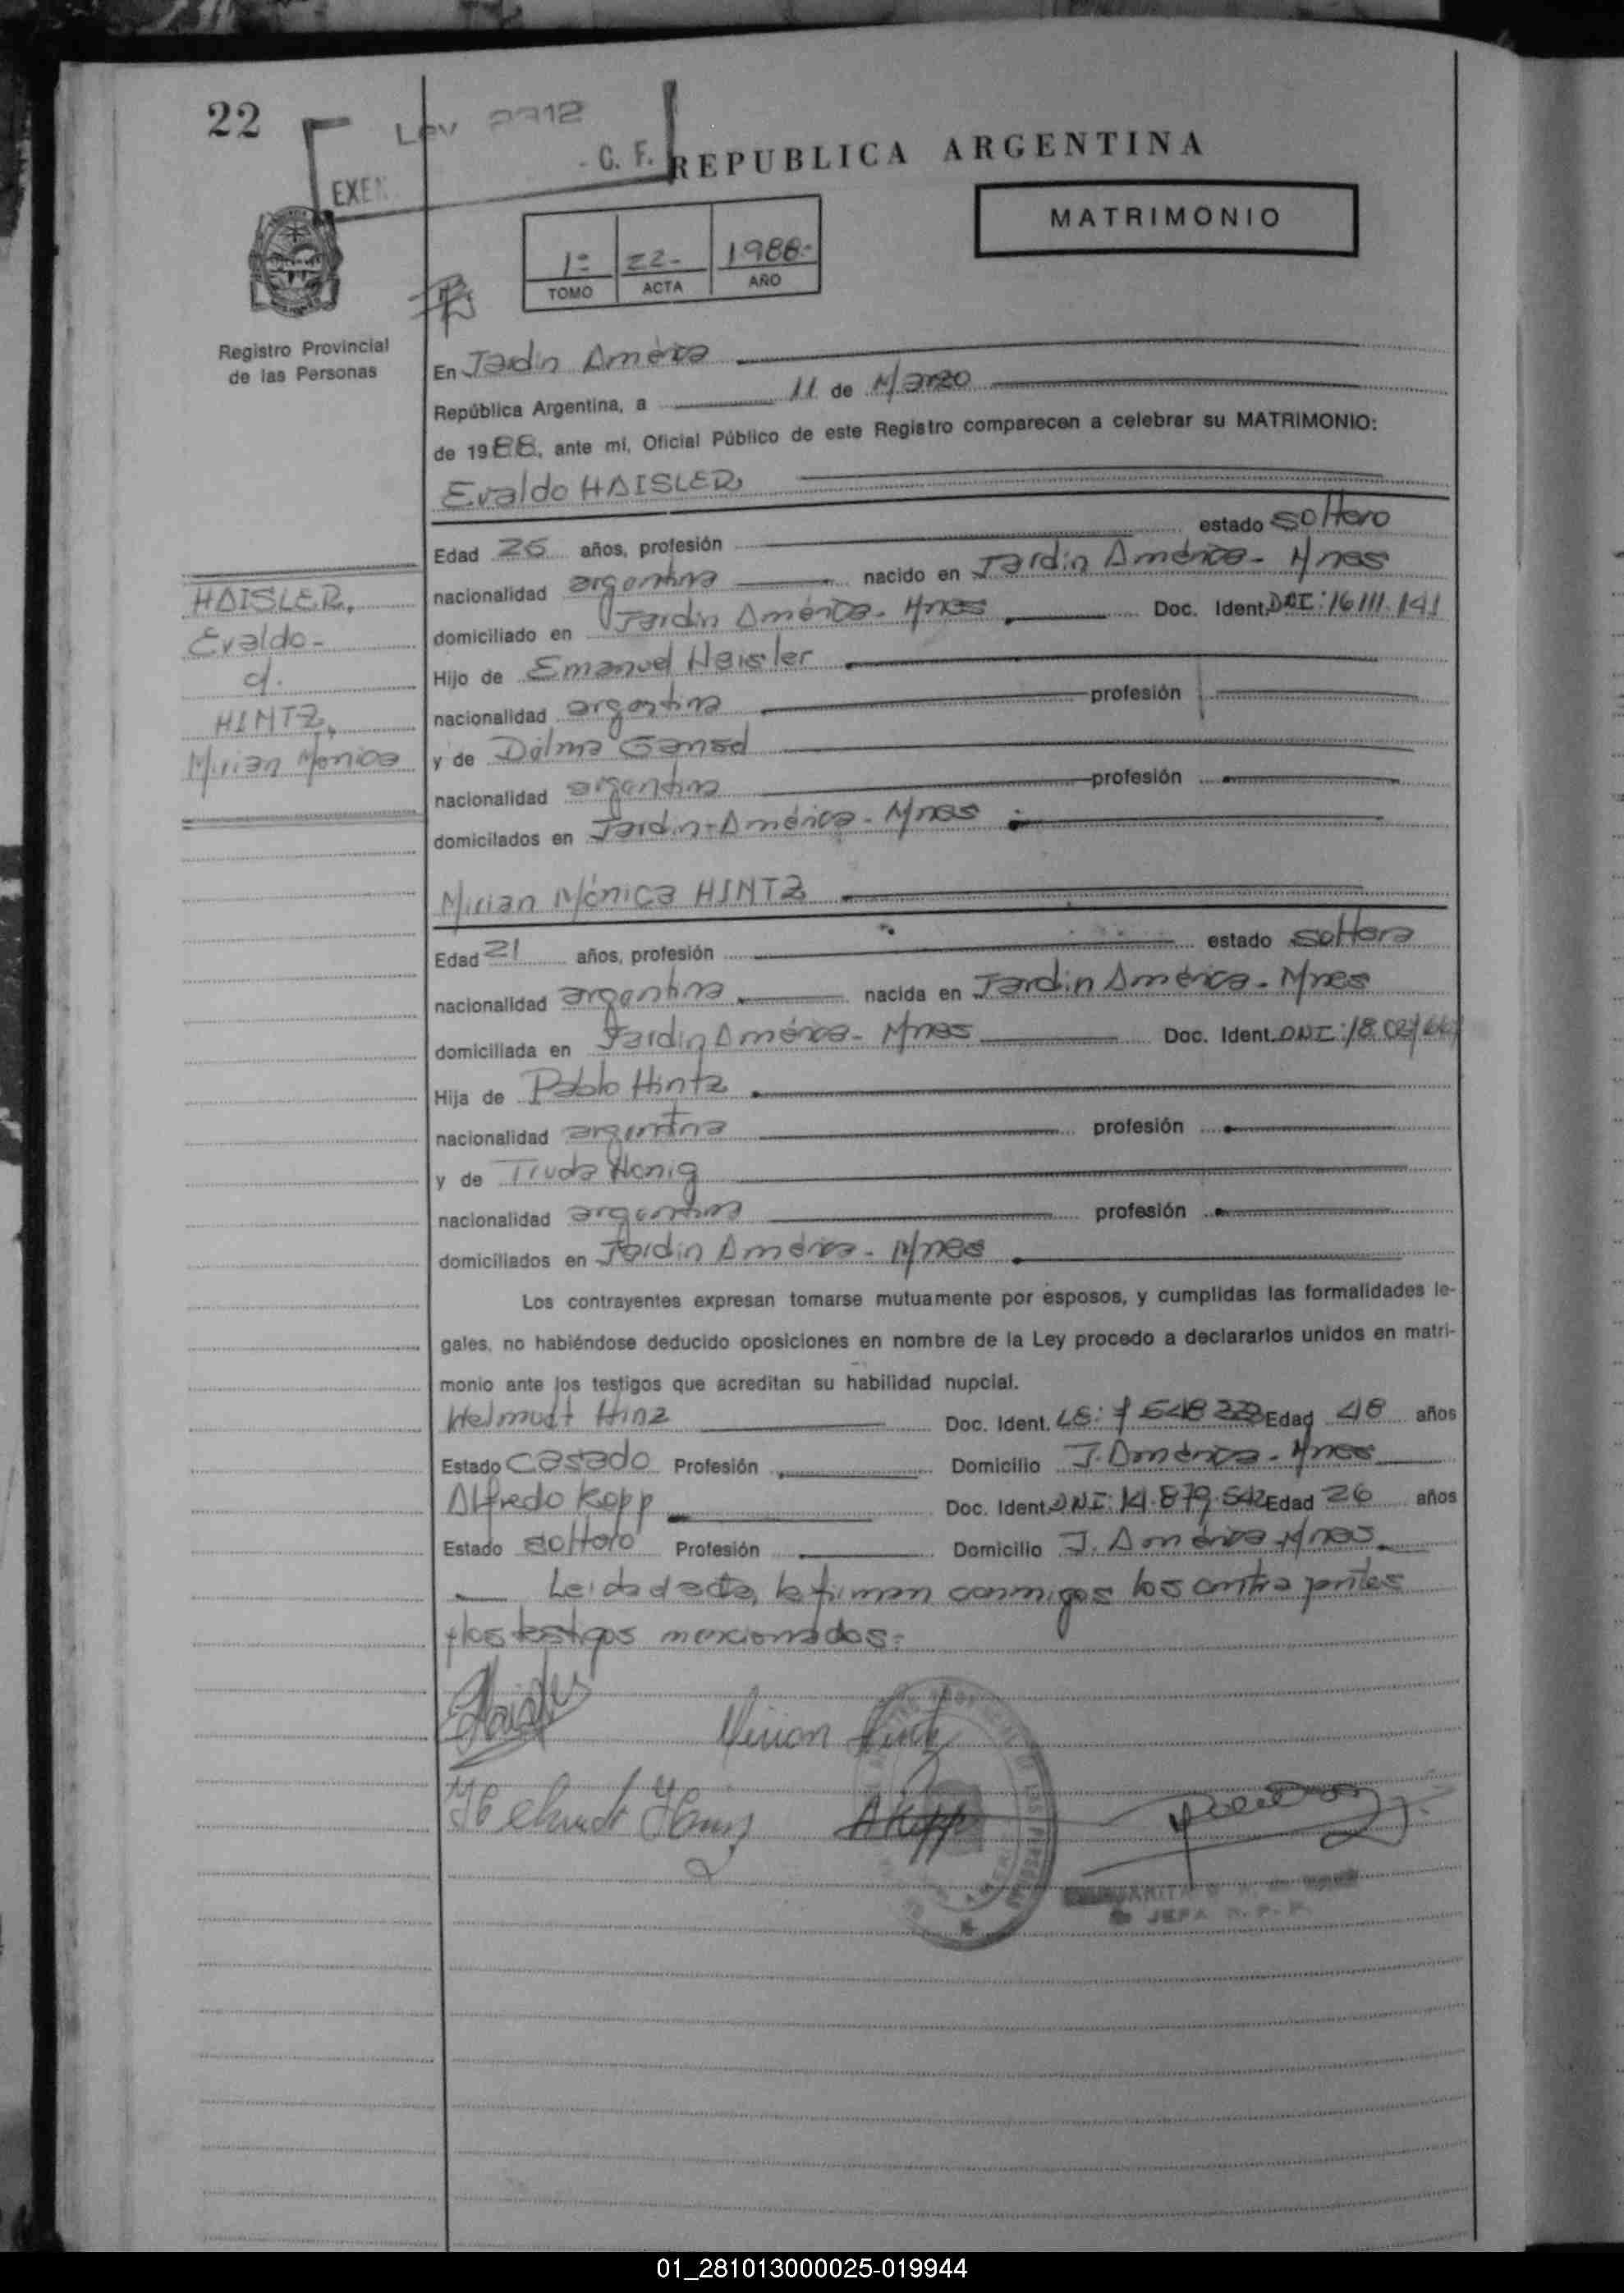 22
Ley 2712
EXEN
- C. F.
REPUBLICA ARGENTINA
MATRIMONIO
1º 22- 1988.-
TOMO ACTA AÑO
Registro Provincial
de las Personas
En Jardín América
República Argentina, a 11 de Marzo
de 1988, ante mi, Oficial Público de este Registro comparecen a celebrar su MATRIMONIO:
Evaldo HAISLER
Edad 25 años, profesión estado soltero
nacionalidad argentina nacido en Jardín América - Mnes
domiciliado en Jardín América - Mnes Doc. Ident. DNI: 16.111.141
Hijo de Emanuel Haisler
nacionalidad argentina profesión
y de Dalma Gansel
nacionalidad argentina profesión
domicilados en Jardín América - Mnes
HAISLER,
Evaldo-
c/.
HINTZ,
Mirian Mónica
Mirian Mónica HINTZ
Edad 21 años, profesión estado soltera
nacionalidad argentina nacida en Jardín América - Mnes
domiciliada en Jardín América - Mnes Doc. Ident. DNI: 18.
Hija de Pablo Hintz
nacionalidad argentina profesión
y de Truda Honig
nacionalidad argentina profesión
domiciliados en Jardín América - Mnes
Los contrayentes expresan tomarse mutuamente por esposos, y cumplidas las formalidades le-
gales, no habiéndose deducido oposiciones en nombre de la Ley procedo a declararlos unidos en matri-
monio ante los testigos que acreditan su habilidad nupcial.
Helmudt Hinz Doc. Ident. LE: 7.548.223 Edad 48 años
Estado casado Profesión Domicilio J. América - Mnes
Alfredo Kopp Doc. Ident. DNI: 14.879.542 Edad 26 años
Estado soltero Profesión Domicilio J. América - Mnes
Leída el acta, la firman conmigos los contrayentes
y los testigos mencionados.-
Haisler
Mirian Hintz
Helmudt Hinz
A Kopp
JEFA R. P. P.
01_281013000025-019944